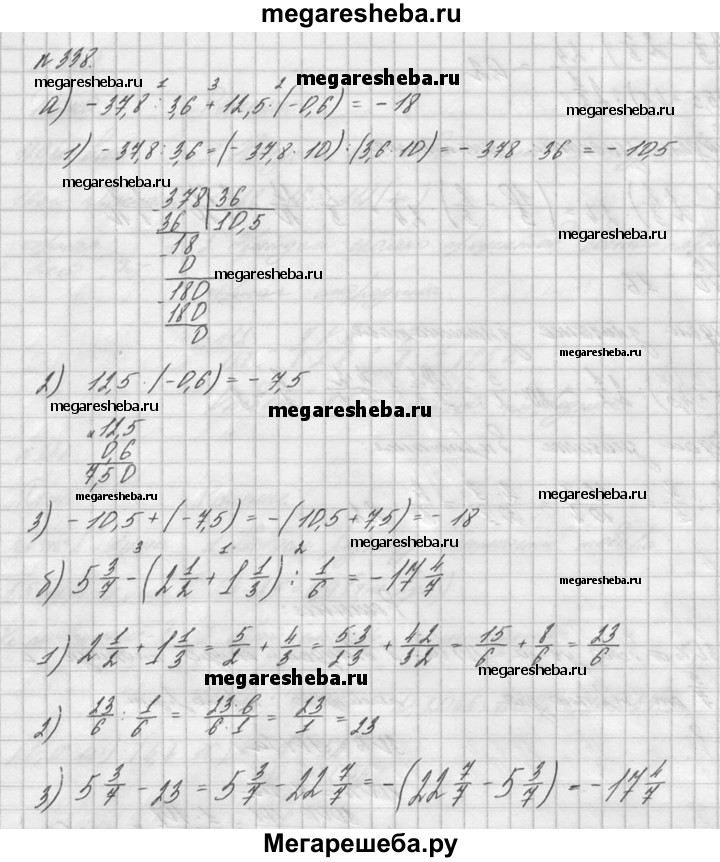 megaresheba.ru
№ 338.
megaresheba.ru megaresheba.ru
1 3 2
а) - 37,8 : 3,6 + 12,5 · (-0,6) = - 18
megaresheba.ru
1) - 37,8 : 3,6 = (- 37,8 · 10) : (3,6 · 10) = - 378 : 36 = - 10,5
megaresheba.ru
378 | 36
36 | 10,5
megaresheba.ru
- 18
0
megaresheba.ru
- 180
180
0
megaresheba.ru
2) 12,5 · (-0,6) = - 7,5
megaresheba.ru megaresheba.ru
x 12,5
0,6
7,50
megaresheba.ru megaresheba.ru
3) - 10,5 + (- 7,5) = - (10,5 + 7,5) = - 18
megaresheba.ru
3 1 2
б) 5 3/7 - (2 1/2 + 1 1/3) : 1/6 = - 17 4/7
megaresheba.ru
1) 2 1/2 + 1 1/3 = 5/2 + 4/3 = 5·3/2·3 + 4·2/3·2 = 15/6 + 8/6 = 23/6
megaresheba.ru megaresheba.ru
2) 23/6 : 1/6 = 23·6/6·1 = 23/1 = 23
megaresheba.ru
3) 5 3/7 - 23 = 5 3/7 - 22 7/7 = - (22 7/7 - 5 3/7) = - 17 4/7
Мегарешеба.ру